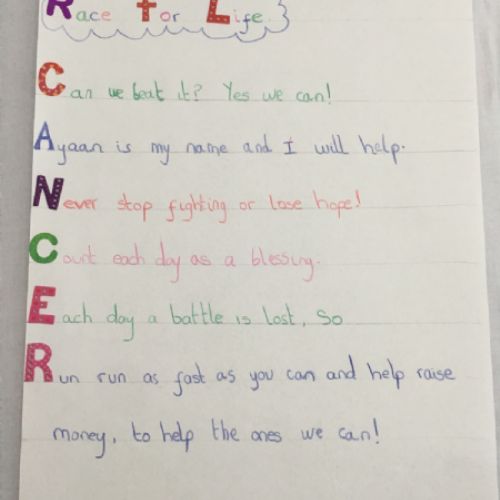 Race for Life
Can we beat it? Yes we can!
Ayaan is my name and I will help.
Never stop fighting or lose hope!
Count each day as a blessing.
Each day a battle is lost, So
Run run as fast as you can and help raise
money, to help the ones we can!